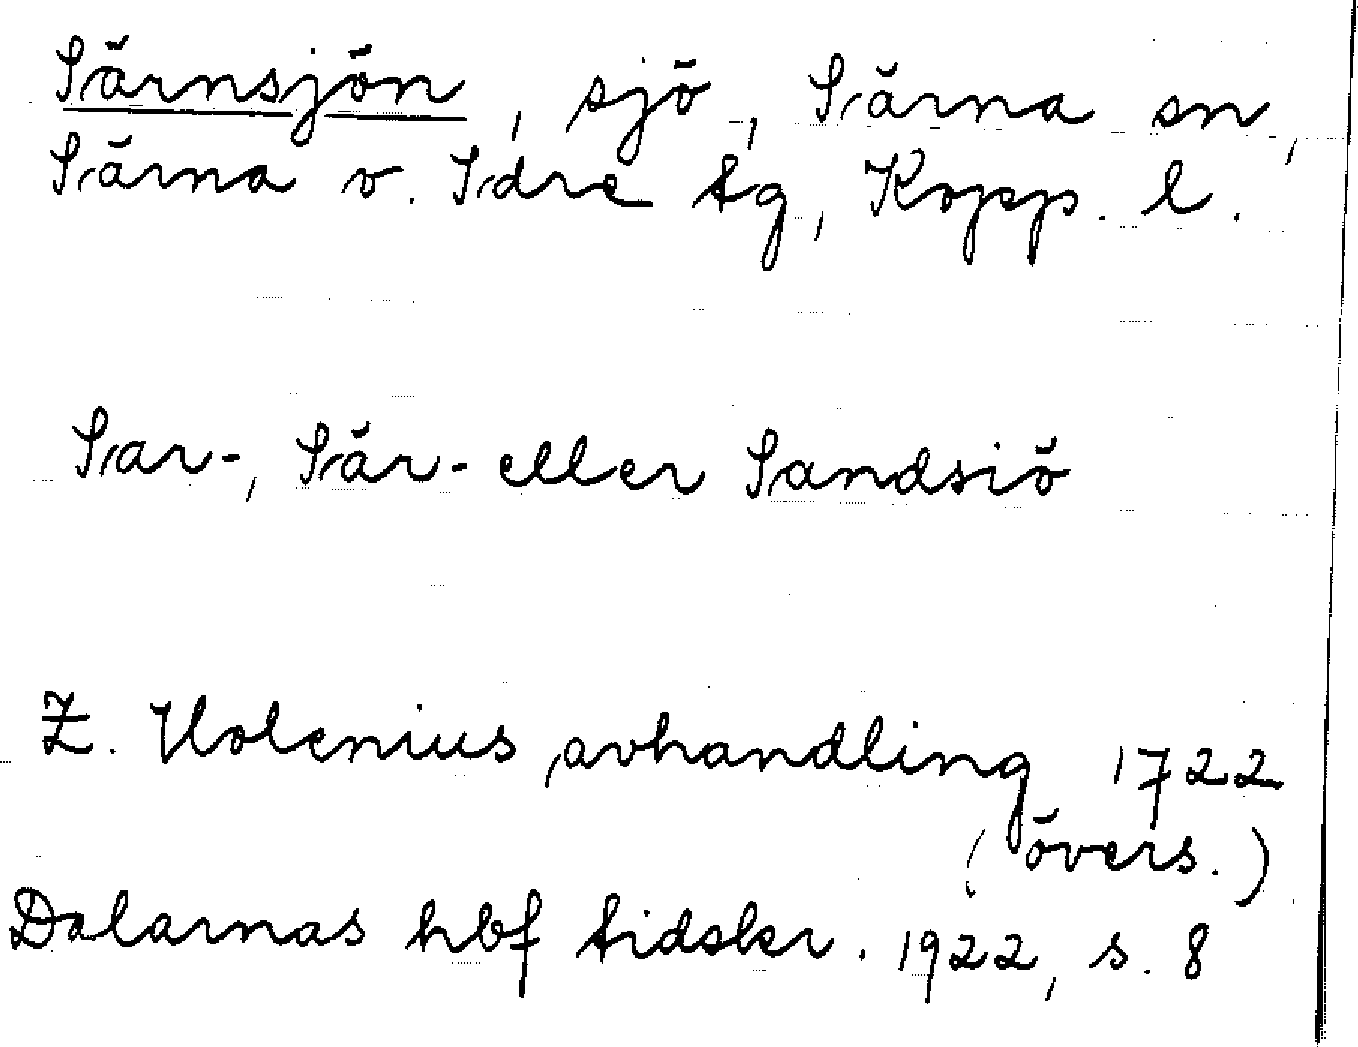 Särnsjön, sjö, Särna sn,
Särna o. Idre tg, Kopp. l.
Sar-, Sär- eller Sandsiö
Z. Holenius, avhandling 1722
(övers.)
Dalarnas hbf tidskr. 1922, s. 8